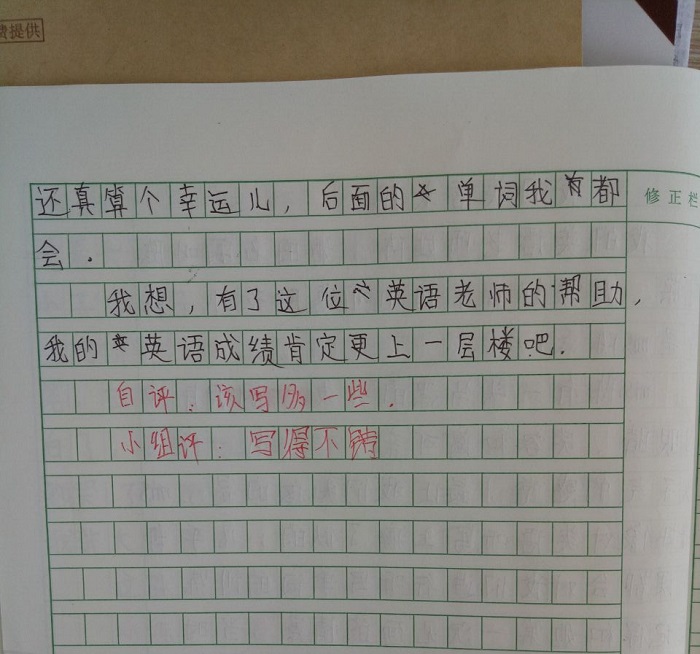 费提供
修正栏
还真算个幸运儿，后面的单词我都
会.
我想，有了这位英语老师的帮助，
我的英语成绩肯定更上一层楼吧.
自评：该写多一些.
小组评：写得不错